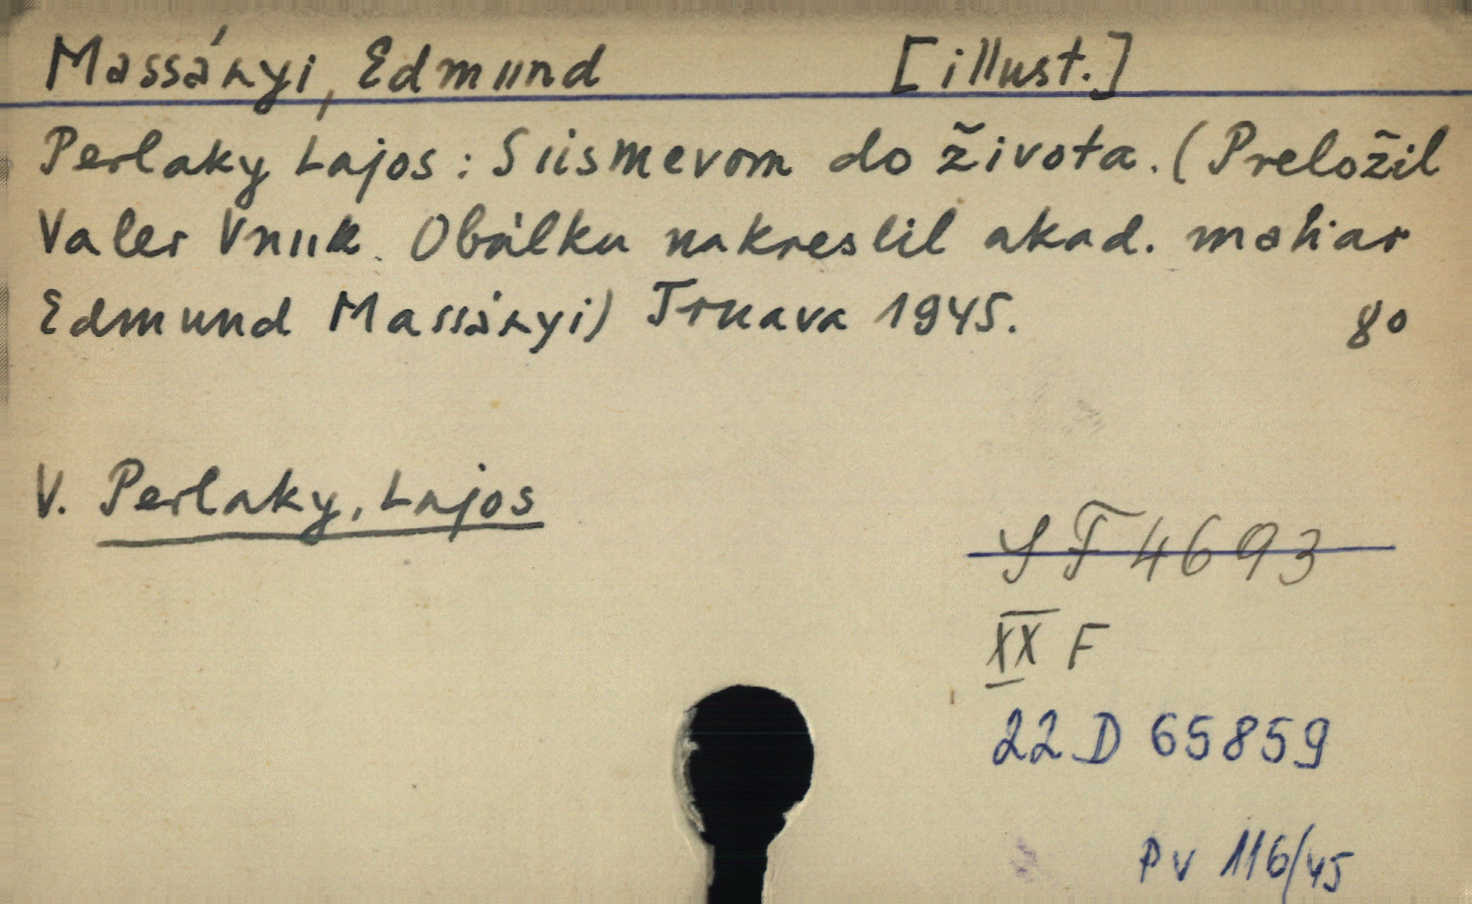 Massányi, Edmund [illust.]
Perlaky Lajos: S úsmevom do života. (Preložil
Valer Vnuk. Obálku nakreslil akad. maliar
Edmund Massányi) Trnava 1945. 8°
V. Perlaky, Lajos
SF 4693
XX F
22 D 65859
PV 116/45